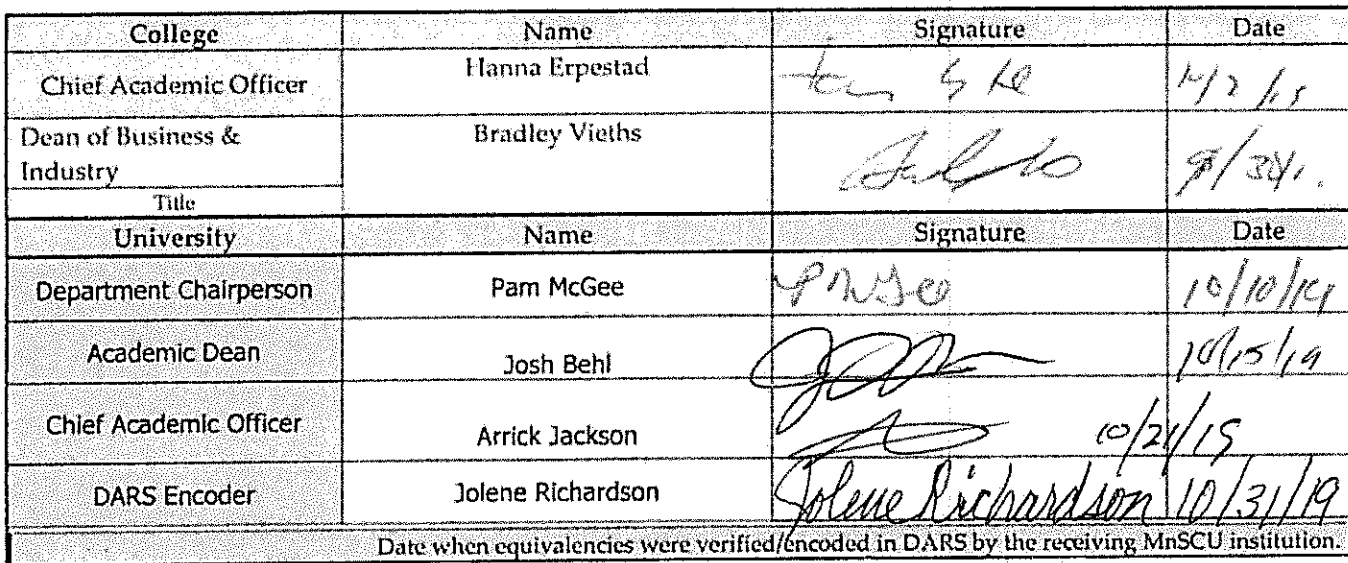 College Name Signature Date
Chief Academic Officer Hanna Erpestad
Dean of Business & Industry Bradley Vieths
Title
University Name Signature Date
Department Chairperson Pam McGee 10/10/19
Academic Dean Josh Behl 10/15/19
Chief Academic Officer Arrick Jackson 10/21/19
DARS Encoder Jolene Richardson Jolene Richardson 10/31/19
Date when equivalencies were verified/encoded in DARS by the receiving MnSCU institution.